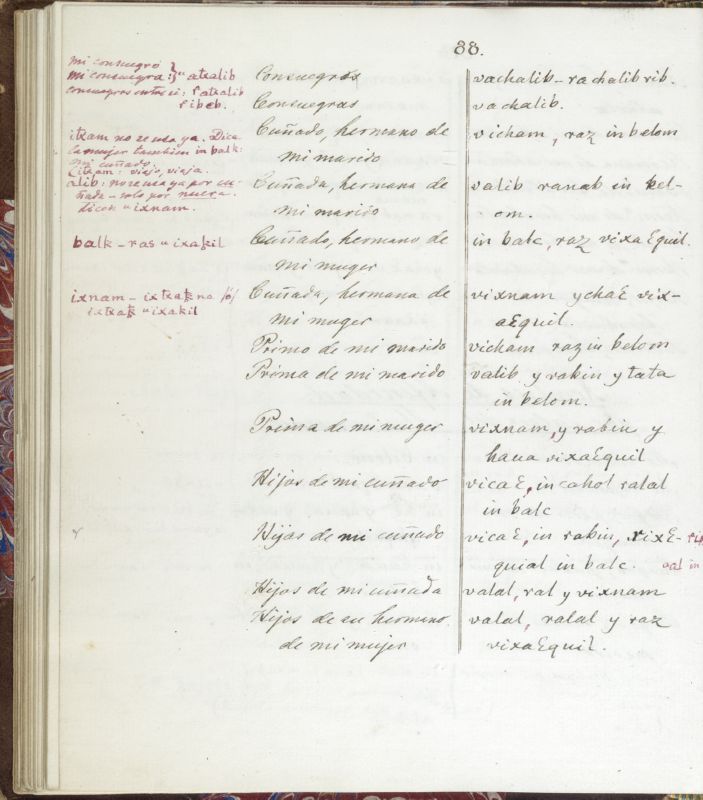 88.
mi consuegro }
mi consuegra :} u atxalib
consuegros entre si; r atxalib
ribeb.
Consuegros
vachalib - rachalib rib.
Consuegras
vachalib.
itxam no se usa ya. Dice
la mujer tambien in balk:
mi cuñado.
(itxam: viejo, vieja.
alib: no se usa ya por cu-
ñada - solo por nuera.
dicen u ixnam.
Cuñado, hermano de
mi marido
vicham, raz in belom
Cuñada, hermana de
mi marido
valib ranab in bel-
om.
balk - ras u ixakil
Cuñado, hermano de
mi muger
in balc, raz vixaƐquil.
ixnam - ixtxak na /o/
ixtxak u ixakil
Cuñada, hermana de
mi muger
vixnam ychaƐ vix-
aƐquil.
Primo de mi marido
vicham raz in belom
Prima de mi marido
valib y rabin y tata
in belom.
Prima de mi muger
vixnam, y rabin y
haua vixaƐquil
Hijos de mi cuñado
vicaƐ, in cahol ralal
in balc
Hijas de mi cuñado
vicaƐ, in rabin, rixƐ-
quial in balc.
oal in
Hijos de mi cuñada
valal, ral y vixnam
Hijos de su hermano
de mi mujer
valal, ralal y raz
vixaƐquil.